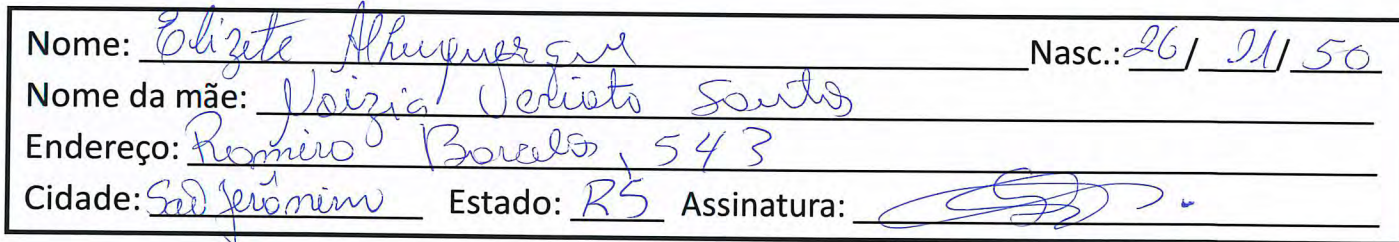 Nome: Elizete Albuquerque Nasc.: 26/ 01/ 50
Nome da mãe: Santos
Endereço: Romiro Barcelos, 543
Cidade: São Jerônimo Estado: RS Assinatura: